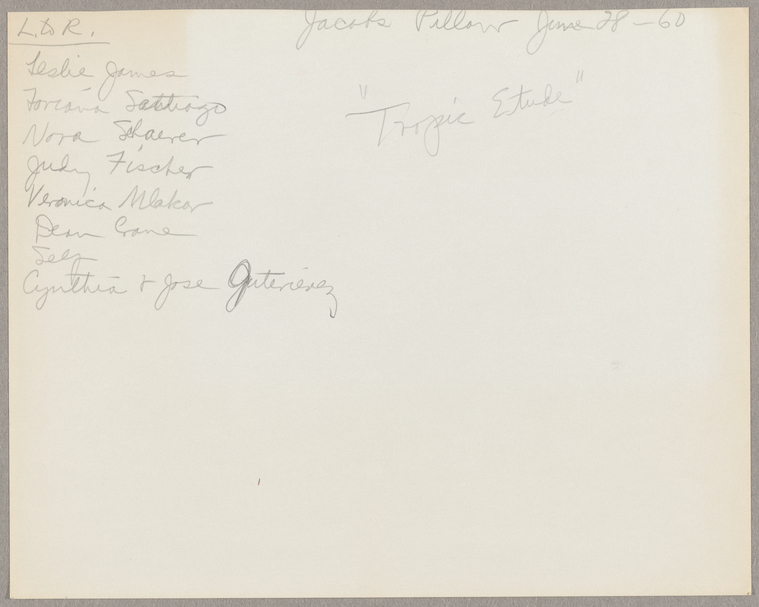 L. to R.
Jacobs Pillow June 28 - 60
Leslie James
Santiago
"Tropic Etude"
Nora Shaerer
Judy Fischer
Veronica Mlakar
Dean Crane
Self
Cynthia & Jose Gutierrez